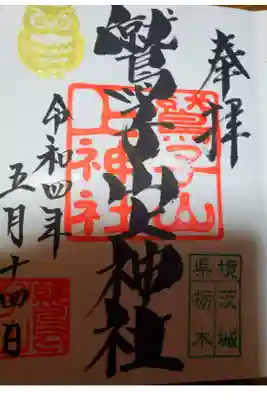 奉拝
鷲子山上神社
鷲子山
上神社
境茨城
県栃木
令和四年
五月十四日